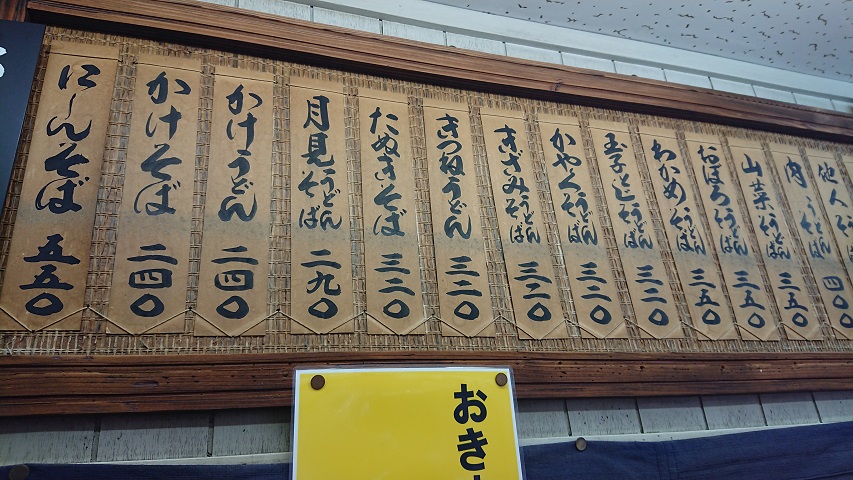 他人うどん そば 四〇〇
肉うどん そば 三五〇
山菜うどん そば 三五〇
おぼろうどん そば 三五〇
わかめうどん そば 三五〇
玉子とじうどん そば 三二〇
かやくうどん そば 三二〇
きざみうどん そば 三二〇
きつねうどん 三二〇
たぬきそば 三二〇
月見うどん そば 二九〇
かけうどん 二四〇
かけそば 二四〇
にしんそば 五五〇
おき